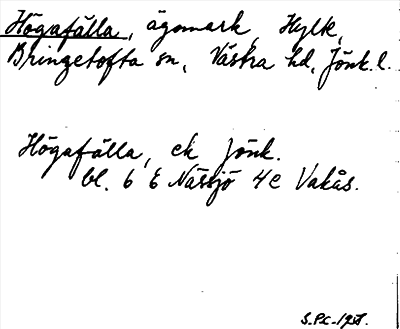 Högafälla, ägomark, Hylk,
Bringetofta sn, Västra hd, Jönk. l.
Högafälla, ek Jönk.
bl. 6 E Nässjö 4c Vakås.
S.P.C-1958.